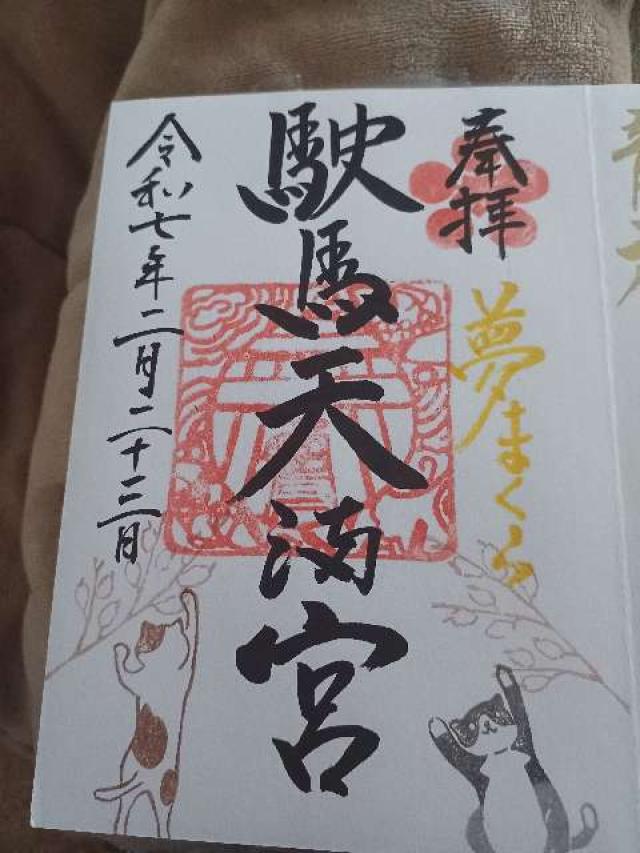 奉拝
夢まくら
駛馬天満宮
令和七年二月二十三日